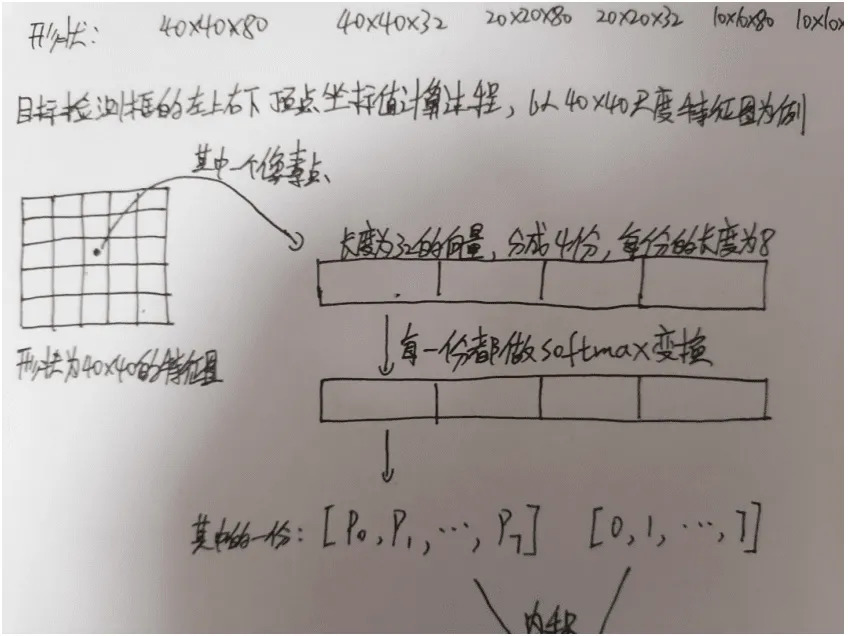 形状: 40×40×80 40×40×32 20×20×80 20×20×32 10×10×80 10×10×
目标检测框的左上右下顶点坐标值计算过程, 以40×40尺度特征图为例
其中一个像素点
长度为32的向量, 分成4份, 每份的长度为8
每一份都做softmax变换
形状为40×40的特征图
其中的一份: [P0, P1, ..., P7] [0, 1, ..., 7]
内积